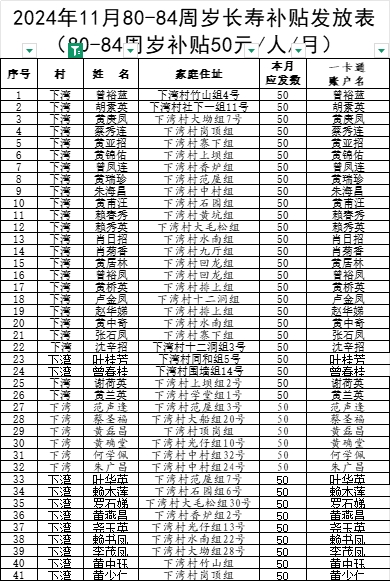 2024年11月80-84周岁长寿补贴发放表
（80-84周岁补贴50元/人/月）
序号 村 姓 名 家庭住址 本月应发数 一卡通账户名
1 下湾 曾裕蓝 下湾村竹山组4号 50 曾裕蓝
2 下湾 胡素英 下湾村社下一组11号 50 胡素英
3 下湾 黄庚凤 下湾村大坳组7号 50 黄庚凤
4 下湾 蔡秀连 下湾村岗顶组 50 蔡秀连
5 下湾 黄亚招 下湾村寨下组 50 黄亚招
6 下湾 黄锦佑 下湾村上坝组 50 黄锦佑
7 下湾 曾凤连 下湾村香炉组 50 曾凤连
8 下湾 黄瑞珍 下湾村范屋组 50 黄瑞珍
9 下湾 朱海昌 下湾村中村组 50 朱海昌
10 下湾 黄甫汪 下湾村石园组 50 黄甫汪
11 下湾 赖春秀 下湾村黄坑组 50 赖春秀
12 下湾 赖秀英 下湾村大毛松组 50 赖秀英
13 下湾 肖日招 下湾村水南组 50 肖日招
14 下湾 肖菊香 下湾村九厅组 50 肖菊香
15 下湾 黄居林 下湾村回龙组 50 黄居林
16 下湾 曾裕凤 下湾村回龙组 50 曾裕凤
17 下湾 黄桥英 下湾村排上组 50 黄桥英
18 下湾 卢金凤 下湾村十二洞组 50 卢金凤
19 下湾 赵华娣 下湾村排上组 50 赵华娣
20 下湾 黄中奇 下湾村水南组 50 黄中奇
21 下湾 张石凤 下湾村寨下组 50 张石凤
22 下湾 沈辛招 下湾村十二洞组3号 50 沈辛招
23 下湾 叶桂芳 下湾村同和组5号 50 叶桂芳
24 下湾 曾春桂 下湾村围墙组14号 50 曾春桂
25 下湾 谢荷英 下湾村上坝组2号 50 谢荷英
26 下湾 黄兰英 下湾村学堂组1号 50 黄兰英
27 下湾 范声逢 下湾村范屋组3号 50 范声逢
28 下湾 蔡圣福 下湾村大船组20号 50 蔡圣福
29 下湾 黄磊昌 下湾村岗顶组 50 黄磊昌
30 下湾 黄 堂 下湾村光仔组10号 50 黄 堂
31 下湾 何学佩 下湾村中村组32号 50 何学佩
32 下湾 朱广昌 下湾村中村组24号 50 朱广昌
33 下湾 叶华英 下湾村范屋组7号 50 叶华英
34 下湾 赖木莲 下湾村石园组6号 50 赖木莲
35 下湾 罗石娣 下湾村大毛松组30号 50 罗石娣
36 下湾 黄燕昌 下湾村香炉组2号 50 黄燕昌
37 下湾 尧玉英 下湾村光仔组13号 50 尧玉英
38 下湾 赖书凤 下湾村水南组22号 50 赖书凤
39 下湾 李茂凤 下湾村大坳组28号 50 李茂凤
40 下湾 黄中珏 下湾村竹山组 50 黄中珏
41 下湾 黄少仁 下湾村岗顶组 50 黄少仁